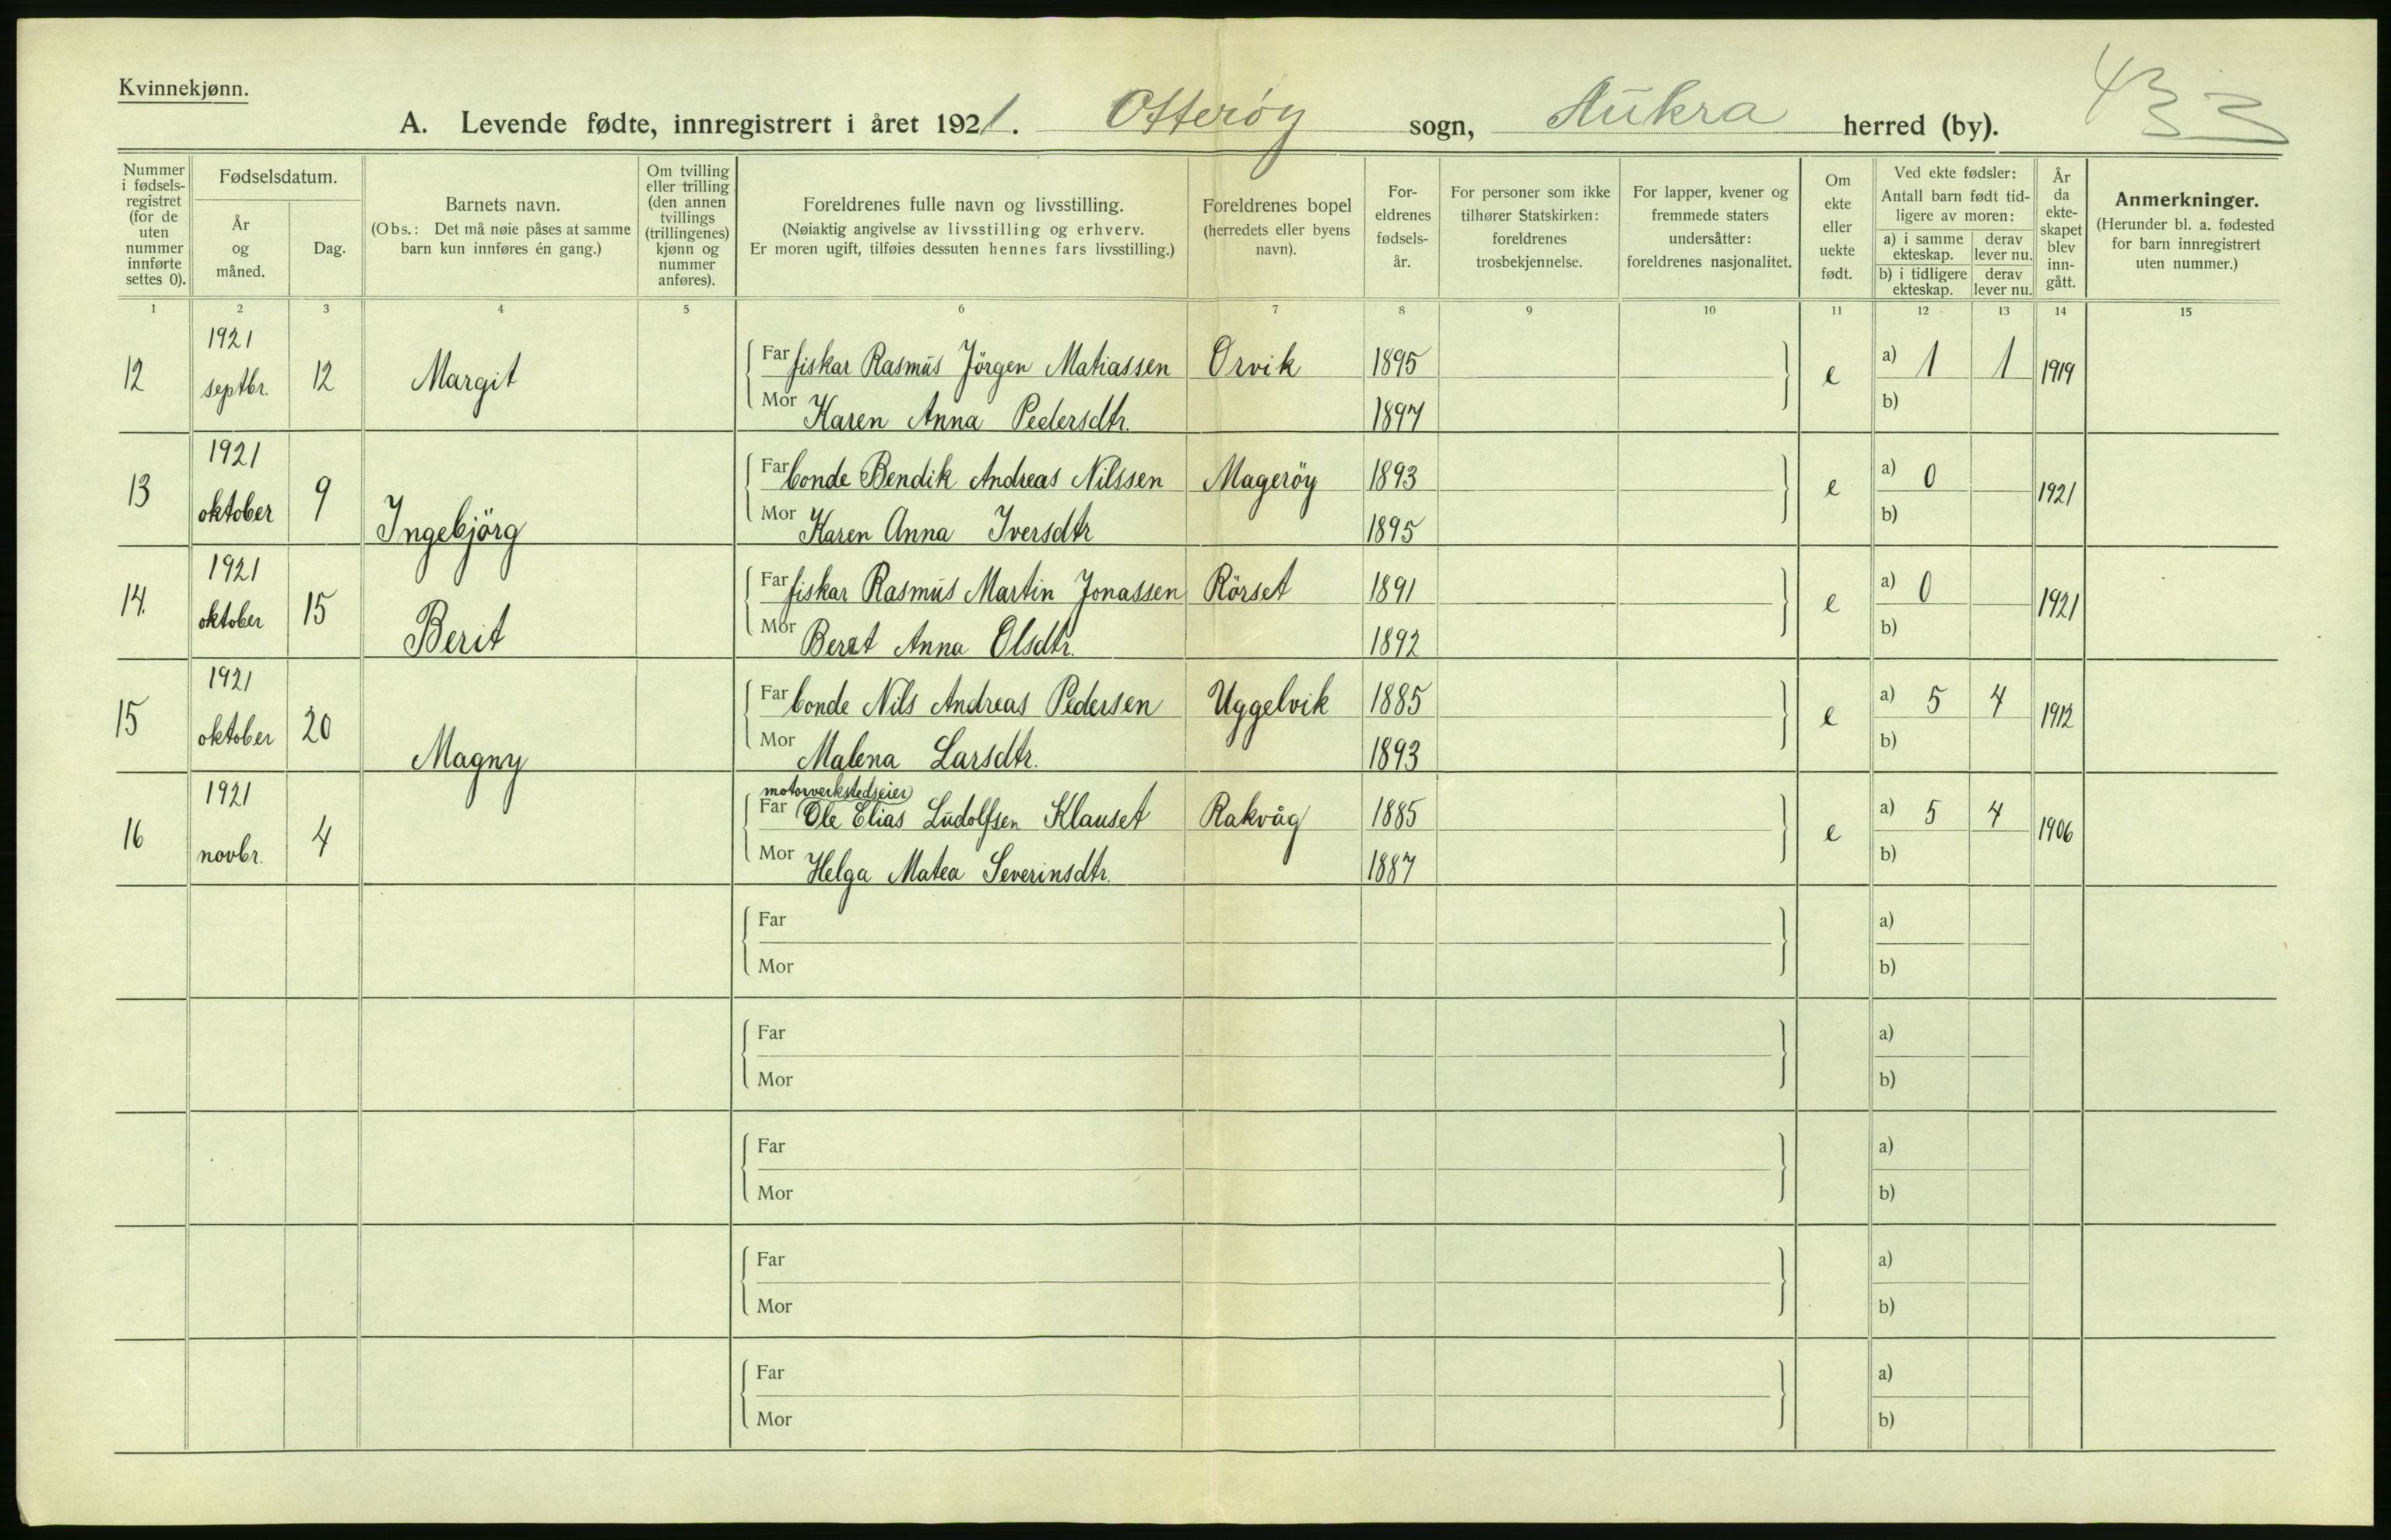 Kvinnekjønn.
A. Levende fødte, innregistrert i året 1921. Otterøy sogn, Aukra herred (by). 433
Nummer i fødsels-registret (for de uten nummer innførte settes 0).
Fødselsdatum.
År og måned.
Dag.
Barnets navn.
(Obs.: Det må nøie påses at samme barn kun innføres én gang.)
Om tvilling eller trilling (den annen tvillings (trillingenes) kjønn og nummer anføres).
Foreldrenes fulle navn og livsstilling.
(Nøiaktig angivelse av livsstilling og erhverv.
Er moren ugift, tilføies dessuten hennes fars livsstilling.)
Foreldrenes bopel
(herredets eller byens navn).
For-eldrenes fødsels-år.
For personer som ikke tilhører Statskirken: foreldrenes trosbekjennelse.
For lapper, kvener og fremmede staters undersåtter: foreldrenes nasjonalitet.
Om ekte eller uekte født.
Ved ekte fødsler:
Antall barn født tid-ligere av moren:
a) i samme ekteskap. derav lever nu.
b) i tidligere ekteskap. derav lever nu.
År da ekte-skapet blev inn-gått.
Anmerkninger.
(Herunder bl. a. fødested for barn innregistrert uten nummer.)
1 2 3 4 5 6 7 8 9 10 11 12 13 14 15
12 1921 septbr. 12 Margit Far fiskar Rasmus Jörgen Matiassen Orvik 1895 e a) 1 1 1919
Mor Karen Anna Pedersdtr. 1897 b)
13 1921 oktober 9 Ingebjörg Far bonde Bendik Andreas Nilssen Mageröy 1893 e a) 0 1921
Mor Karen Anna Iversdtr 1895 b)
14. 1921 oktober 15 Berit Far fiskar Rasmus Martin Jonassen Rörset 1891 e a) 0 1921
Mor Anna Olsdtr. 1892 b)
15 1921 oktober 20 Magny Far bonde Nils Andreas Pedersen Uggelvik 1885 e a) 5 4 1912
Mor Malena Larsdtr. 1893 b)
motorverkstedseier
16 1921 novbr. 4 Far Ole Elias Ludolfsen Klauset Rakvåg 1885 e a) 5 4 1906
Mor Helga Matea Severinsdtr. 1887 b)
Far a)
Mor b)
Far a)
Mor b)
Far a)
Mor b)
Far a)
Mor b)
Far a)
Mor b)